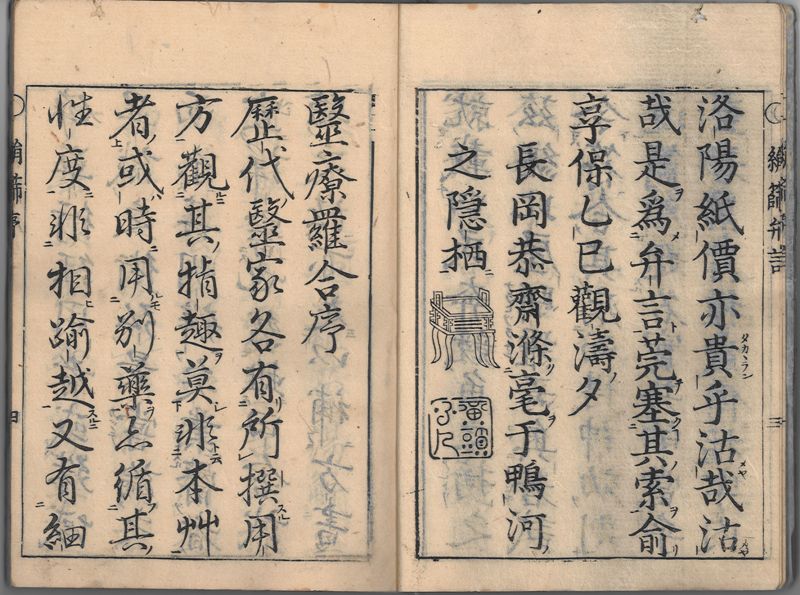 絹篩弁言 三
洛陽紙價亦貴乎沽哉沽
哉是爲弁言莞塞其索俞
享保乙巳觀濤夕
長岡恭齋滌毫于鴨河
之隠栖
毉療羅合序
歷代毉家各有所撰用
方觀其指趣莫非本艸
者或時用別藥亦循其
性度非相踰越又有細
絹篩序 四